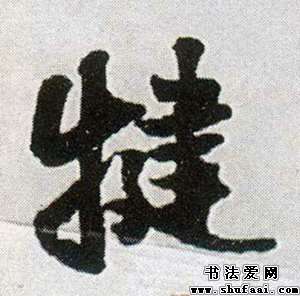 犍
书法爱网
www.shufaai.com